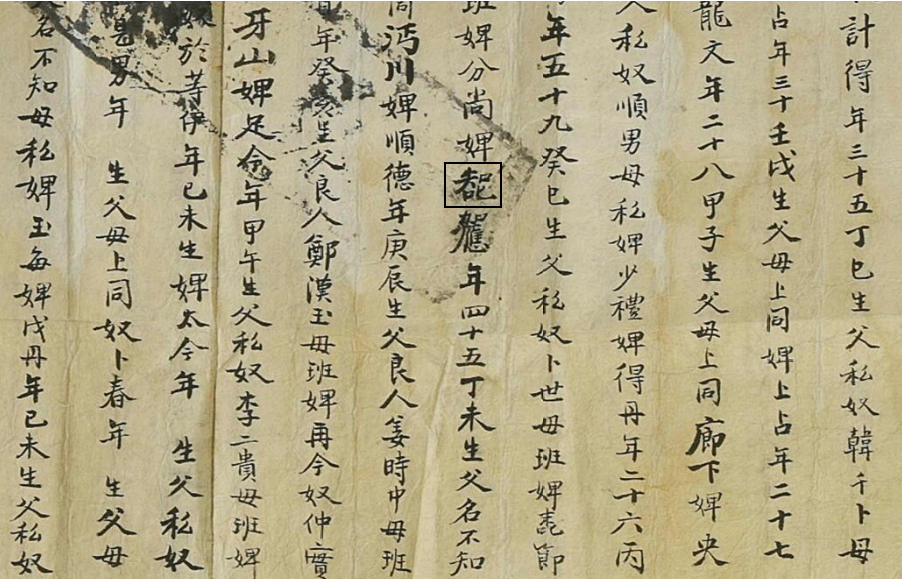 計得年三十五丁巳生父私奴韓千卜母
占年三十壬戌生父母上同婢上占年二十七
龍文年二十八甲子生父母上同廊下婢央
人私奴順男母私婢少禮婢得丹年二十六丙
年五十九癸巳生父私奴卜世母班婢節
班婢分尚婢年四十五丁未生父名不知
沔川婢順德年庚辰生父良人姜時中母班
年癸亥生父良人鄭漢玉母班婢再今奴仲實
牙山婢足今年甲午生父私奴李二貴母班婢
奴於等伊年己未生婢太今年 生父私奴
男年 生父母上同奴卜春年 生父母
名不知母私婢玉每婢戊丹年己未生父私奴